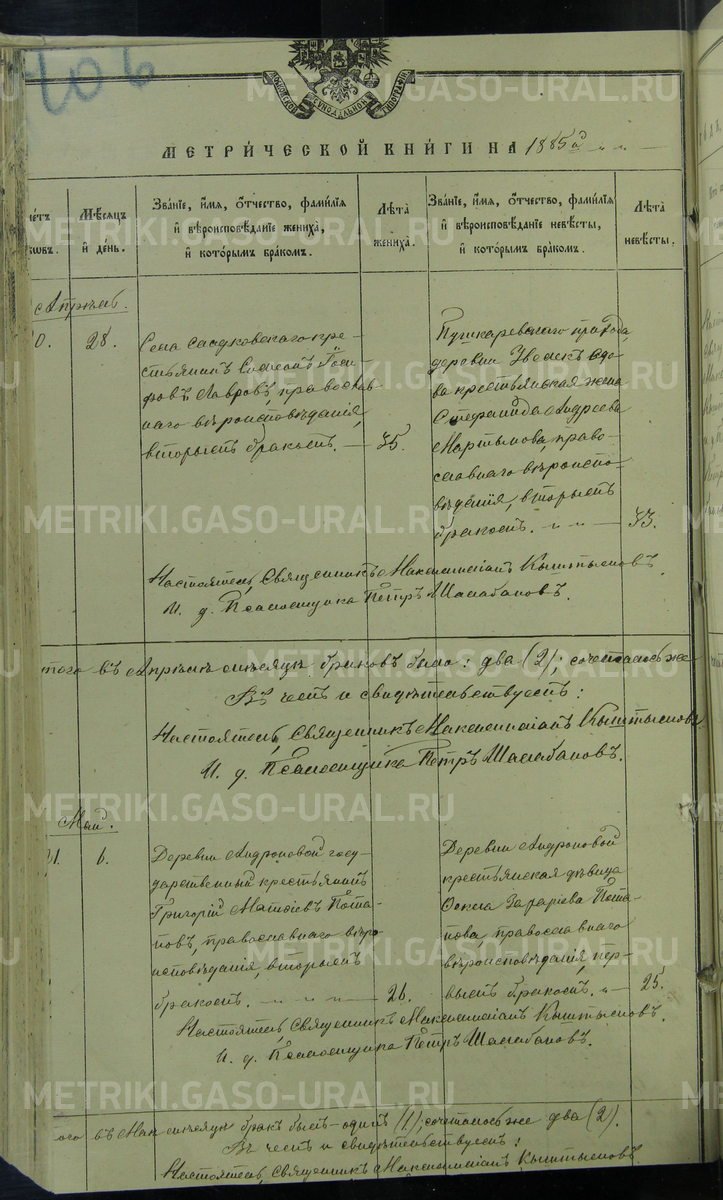 406
МОСКОВСКОЙ СѴНОДАЛЬНОЙ ТИПОГРАФІИ
МЕТРИ́ЧЕСКОЙ КНИ́ГИ НА 1885 й
Мѣ́сяцъ и҆ де́нь.
Зва́нїе, и҆́мя, ѻ҆́тчество, фами́лїя
и҆ вѣроисповѣ́данїе жениха̀,
и҆ кото́рымъ бра́комъ.
Лѣ́та жениха̀.
Зва́нїе, и҆́мя, ѻ҆́тчество, фами́лїя
и҆ вѣроисповѣ́данїе невѣ́сты,
и҆ кото́рымъ бра́комъ.
Лѣ́та невѣ́сты.
Апрѣль.
28.
Села кре-
стьянинъ Симеонъ Іоси-
фовъ Лавровъ, православ
наго вѣроисповѣданія,
вторымъ бракомъ. —
35.
Пушкаревскаго прихода,
деревни вдо-
ва крестьянская жена
Стефанида Андреева
Мартымова, право-
славнаго вѣроиспо-
вѣданія, вторымъ
бракомъ. — " — " —
33.
Настоятель, Священникъ Максимиліанъ Кыштымовъ.
И. д. Псаломщика Петръ Шалабановъ.
того въ Апрѣлѣ мѣсяцѣ браковъ было: два (2); сочеталось же
Въ чемъ и свидѣтельствуемъ:
Настоятель, Священникъ Максимиліанъ Кыштымовъ
И. д. Псаломщика Петръ Шалабановъ.
Май.
6.
Деревни Андроновой госу-
дарственный крестьянинъ
Григорій Матѳіевъ Пота-
повъ, православнаго вѣро
исповѣданія, вторымъ
бракомъ. — " — " — " —
26.
Деревни Андроновой
крестьянская дѣвица
Ѳекла Захаріева Пота-
пова, православнаго
вѣроисповѣданія, пер-
вымъ бракомъ. " —
25.
Настоятель, Священникъ Максимиліанъ Кыштымовъ.
И. д. Псаломщика Петръ Шалабановъ.
ого въ Маѣ мѣсяцѣ бракъ былъ — одинъ (1); сочеталось же два (2).
Въ чемъ и свидѣтельствуемъ:
Настоятель, Священникъ Максимиліанъ Кыштымовъ
METRIKI.GASO-URAL.RU